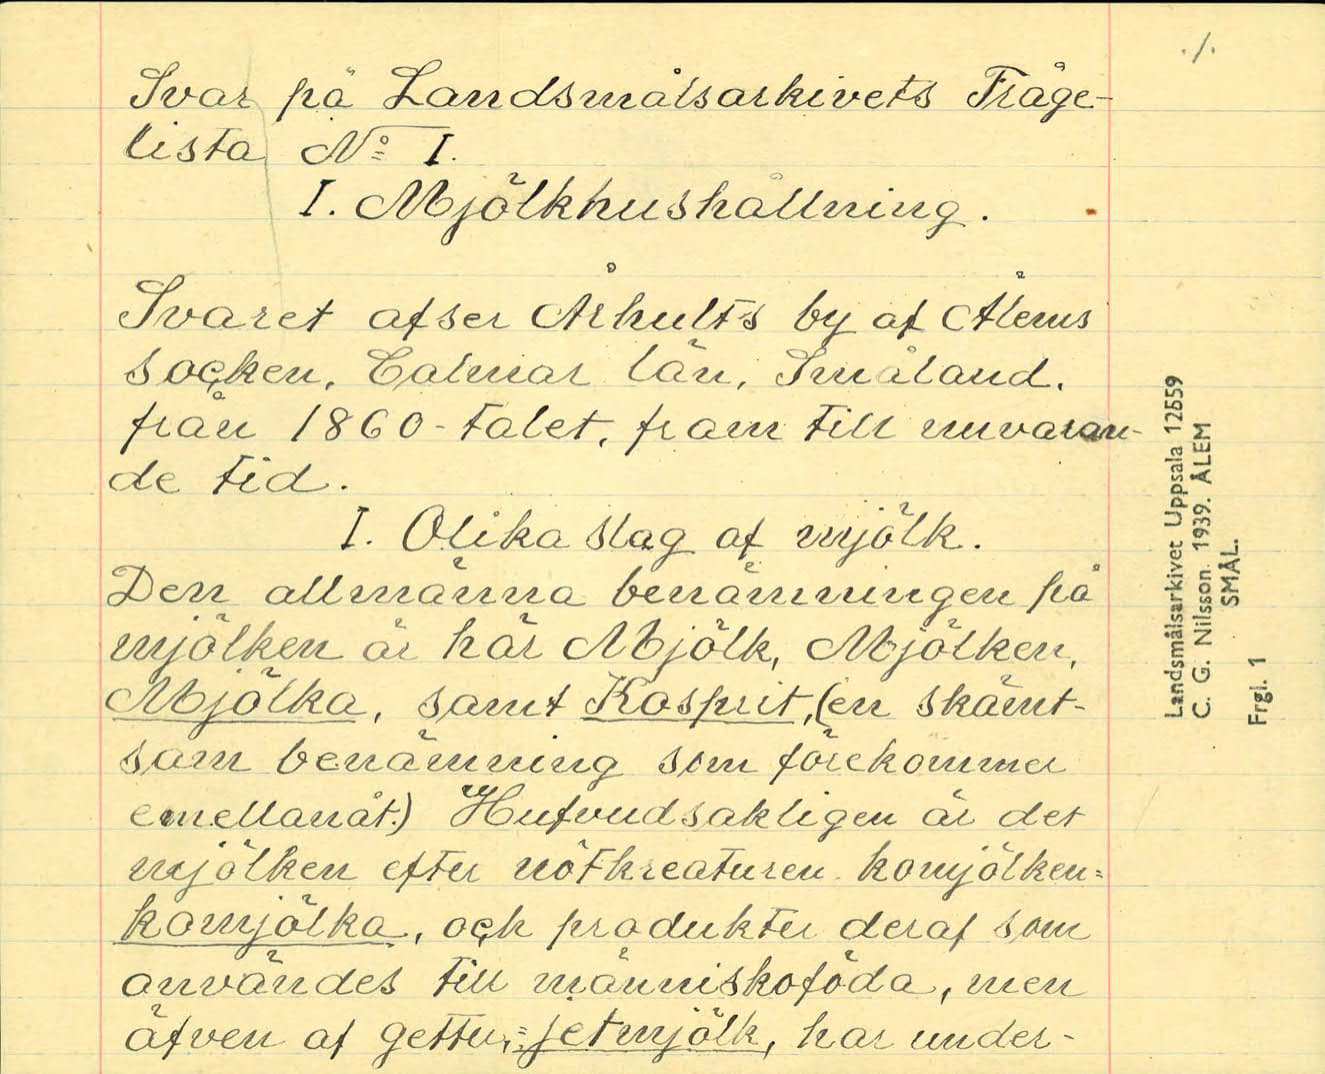 ./.
Svar på Landsmålsarkivets Fråge-
lista No I.
I. Mjölkhushållning.
Svaret afser Århults by af Ålems
socken, Calmar län, Småland,
från 1860-talet, fram till nuvaran-
de tid.
I. Olika slag af mjölk.
Den allmänna benämningen på
mjölken är här Mjölk, Mjölken,
Mjölka, samt Kosprit, (en skämt-
sam benämning som förekommer
emellanåt.) Hufvudsakligen är det
mjölken efter nötkreaturen komjölken=
komjölka, och produkter deraf som
användes till människoföda, men
äfven af getter,=jetmjölk, har under-
Landsmålsarkivet Uppsala 12559
C. G. Nilsson. 1939. ÅLEM
SMÅL.
Frgl. 1